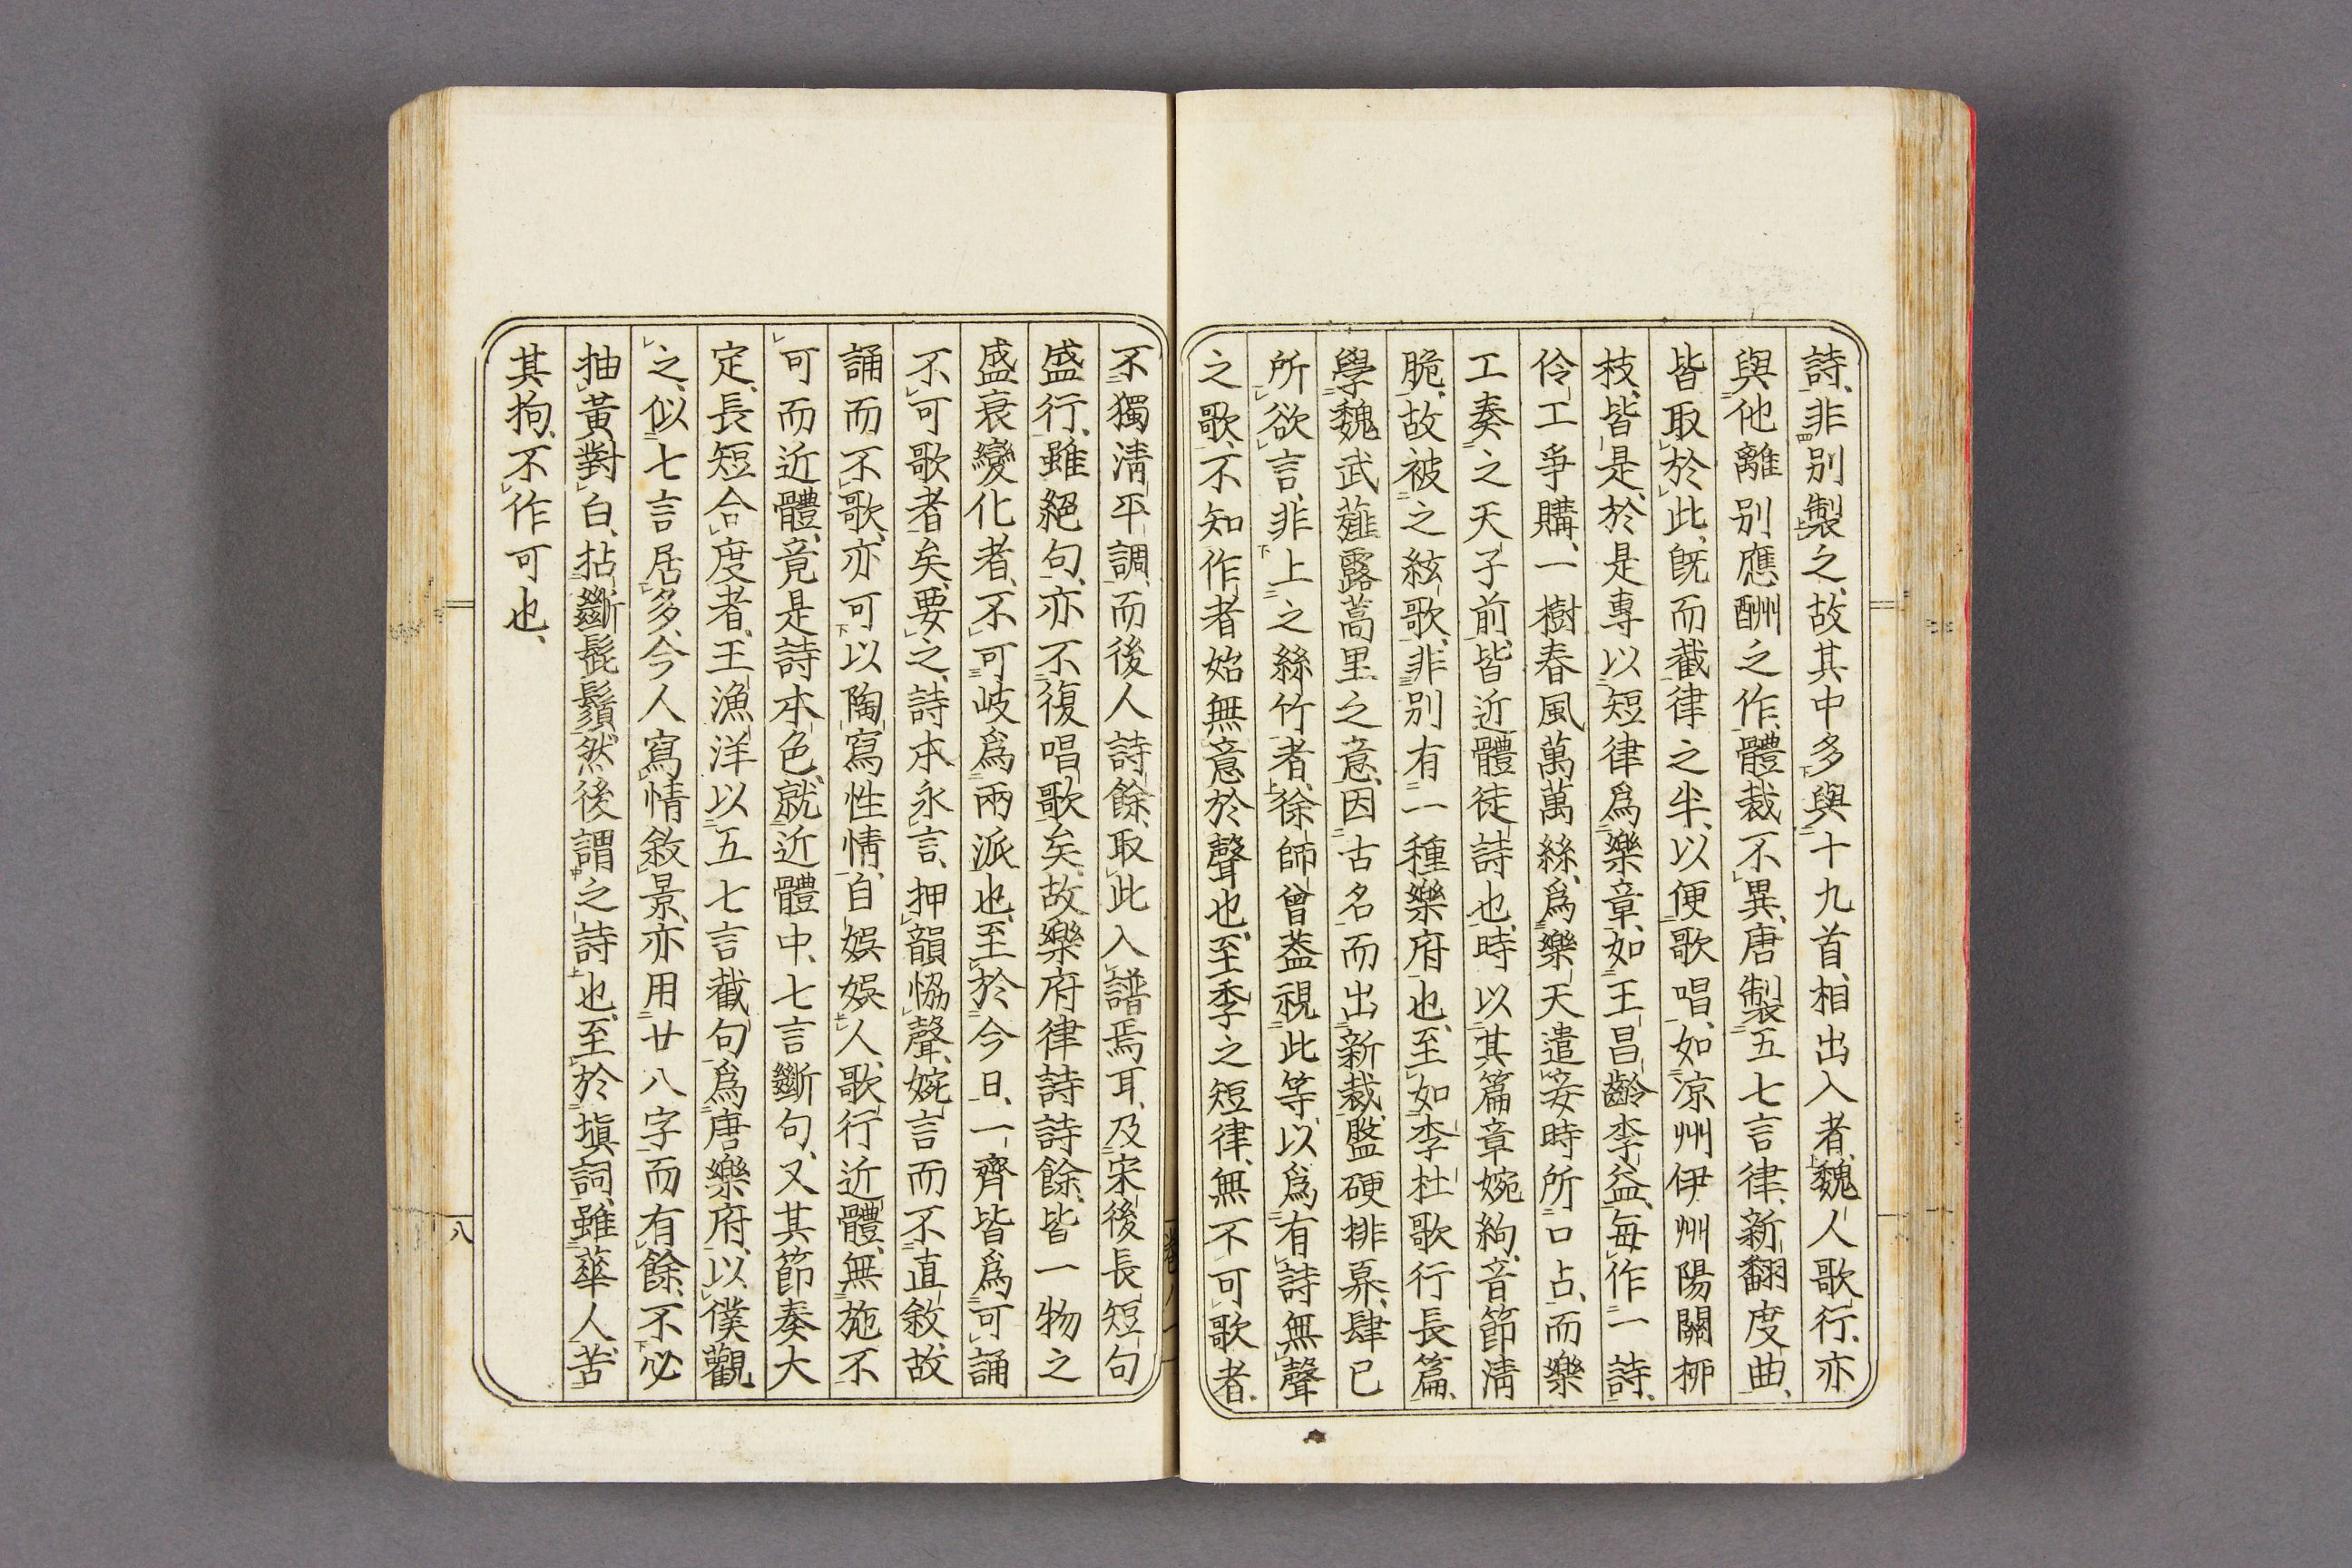 詩、非別製之、故其中多與十九首、相出入者、魏人歌行、亦
與他離別應酬之作、體裁不異、唐製五七言律、新翻度曲、
皆取於此、既而截律之半、以便歌唱、如凉州伊州陽關栁
枝、皆是、於是專以短律爲樂章、如王昌齡李益、每作一詩、
伶工爭購、一樹春風萬萬絲、爲樂天遣妾時所口占、而樂
工奏之天子前、皆近體徒詩也、時以其篇章婉約、音節淸
脆、故被之絃歌、非別有一種樂府也、至如李杜歌行長篇、
學魏武薤露蒿里之意、因古名而出新裁、盤硬排奡、肆已
所欲言、非上之絲竹者、徐師曾葢視此等、以爲有詩無聲
之歌、不知作者始無意於聲也、至季之短律、無不可歌者、
不獨淸平調、而後人詩餘、取此入譜焉耳、及宋後長短句
盛行、雖絕句、亦不復唱歌矣、故樂府律詩詩餘、皆一物之
盛衰變化者、不可岐爲兩派也、至於今日、一齊皆爲可誦
不可歌者矣、要之、詩本永言、押韻恊聲、婉言而不直敘、故
誦而不歌、亦可以陶寫性情、自娛娛人、歌行近體、無施不
可而近體、竟是詩本色、就近體中、七言斷句、又其節奏大
定、長短合度者、王漁洋以五七言截句、爲唐樂府、以僕觀
之、似七言居多、今人寫情敘景、亦用廿八字而有餘、不必
抽黃對白、拈斷髭鬚、然後謂之詩也、至於塡詞、雖華人、苦
其拘、不作可也、
八